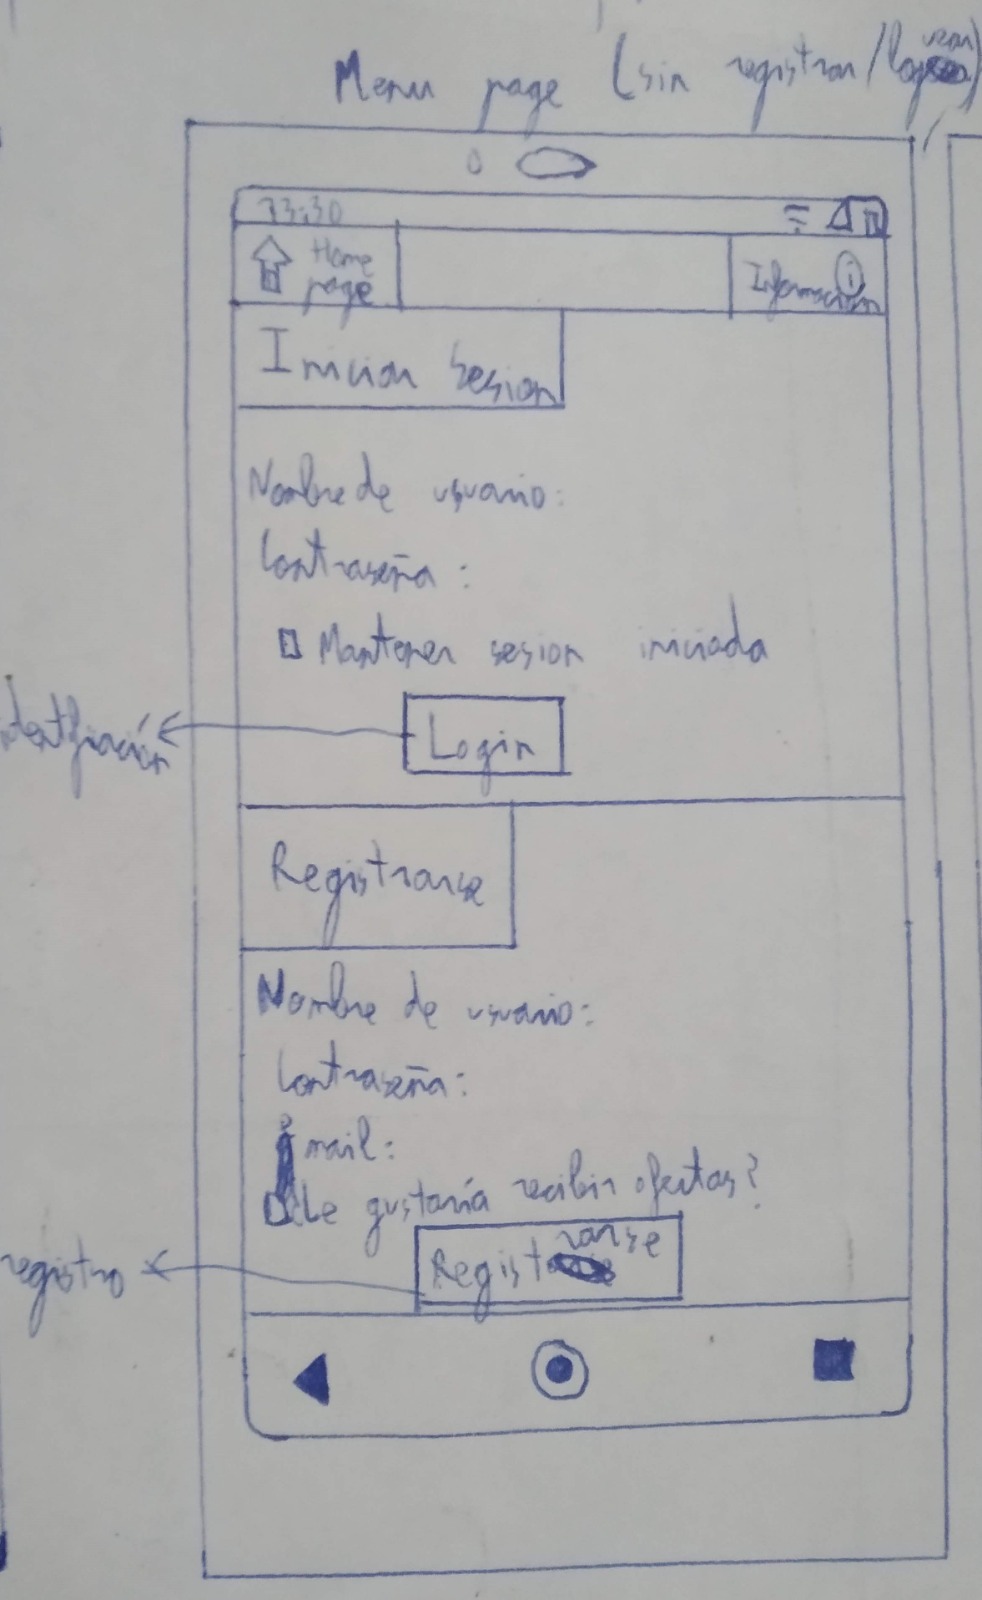 Menu page (sin registrar/log
13:30
Home
page
Información
Iniciar sesion
Nombre de usuario:
Contraseña:
Mantener sesion iniciada
identifiación
Login
Registrarse
Nombre de usuario:
Contraseña:
mail:
Le gustaría recibir ofertas?
Registrarse
registro